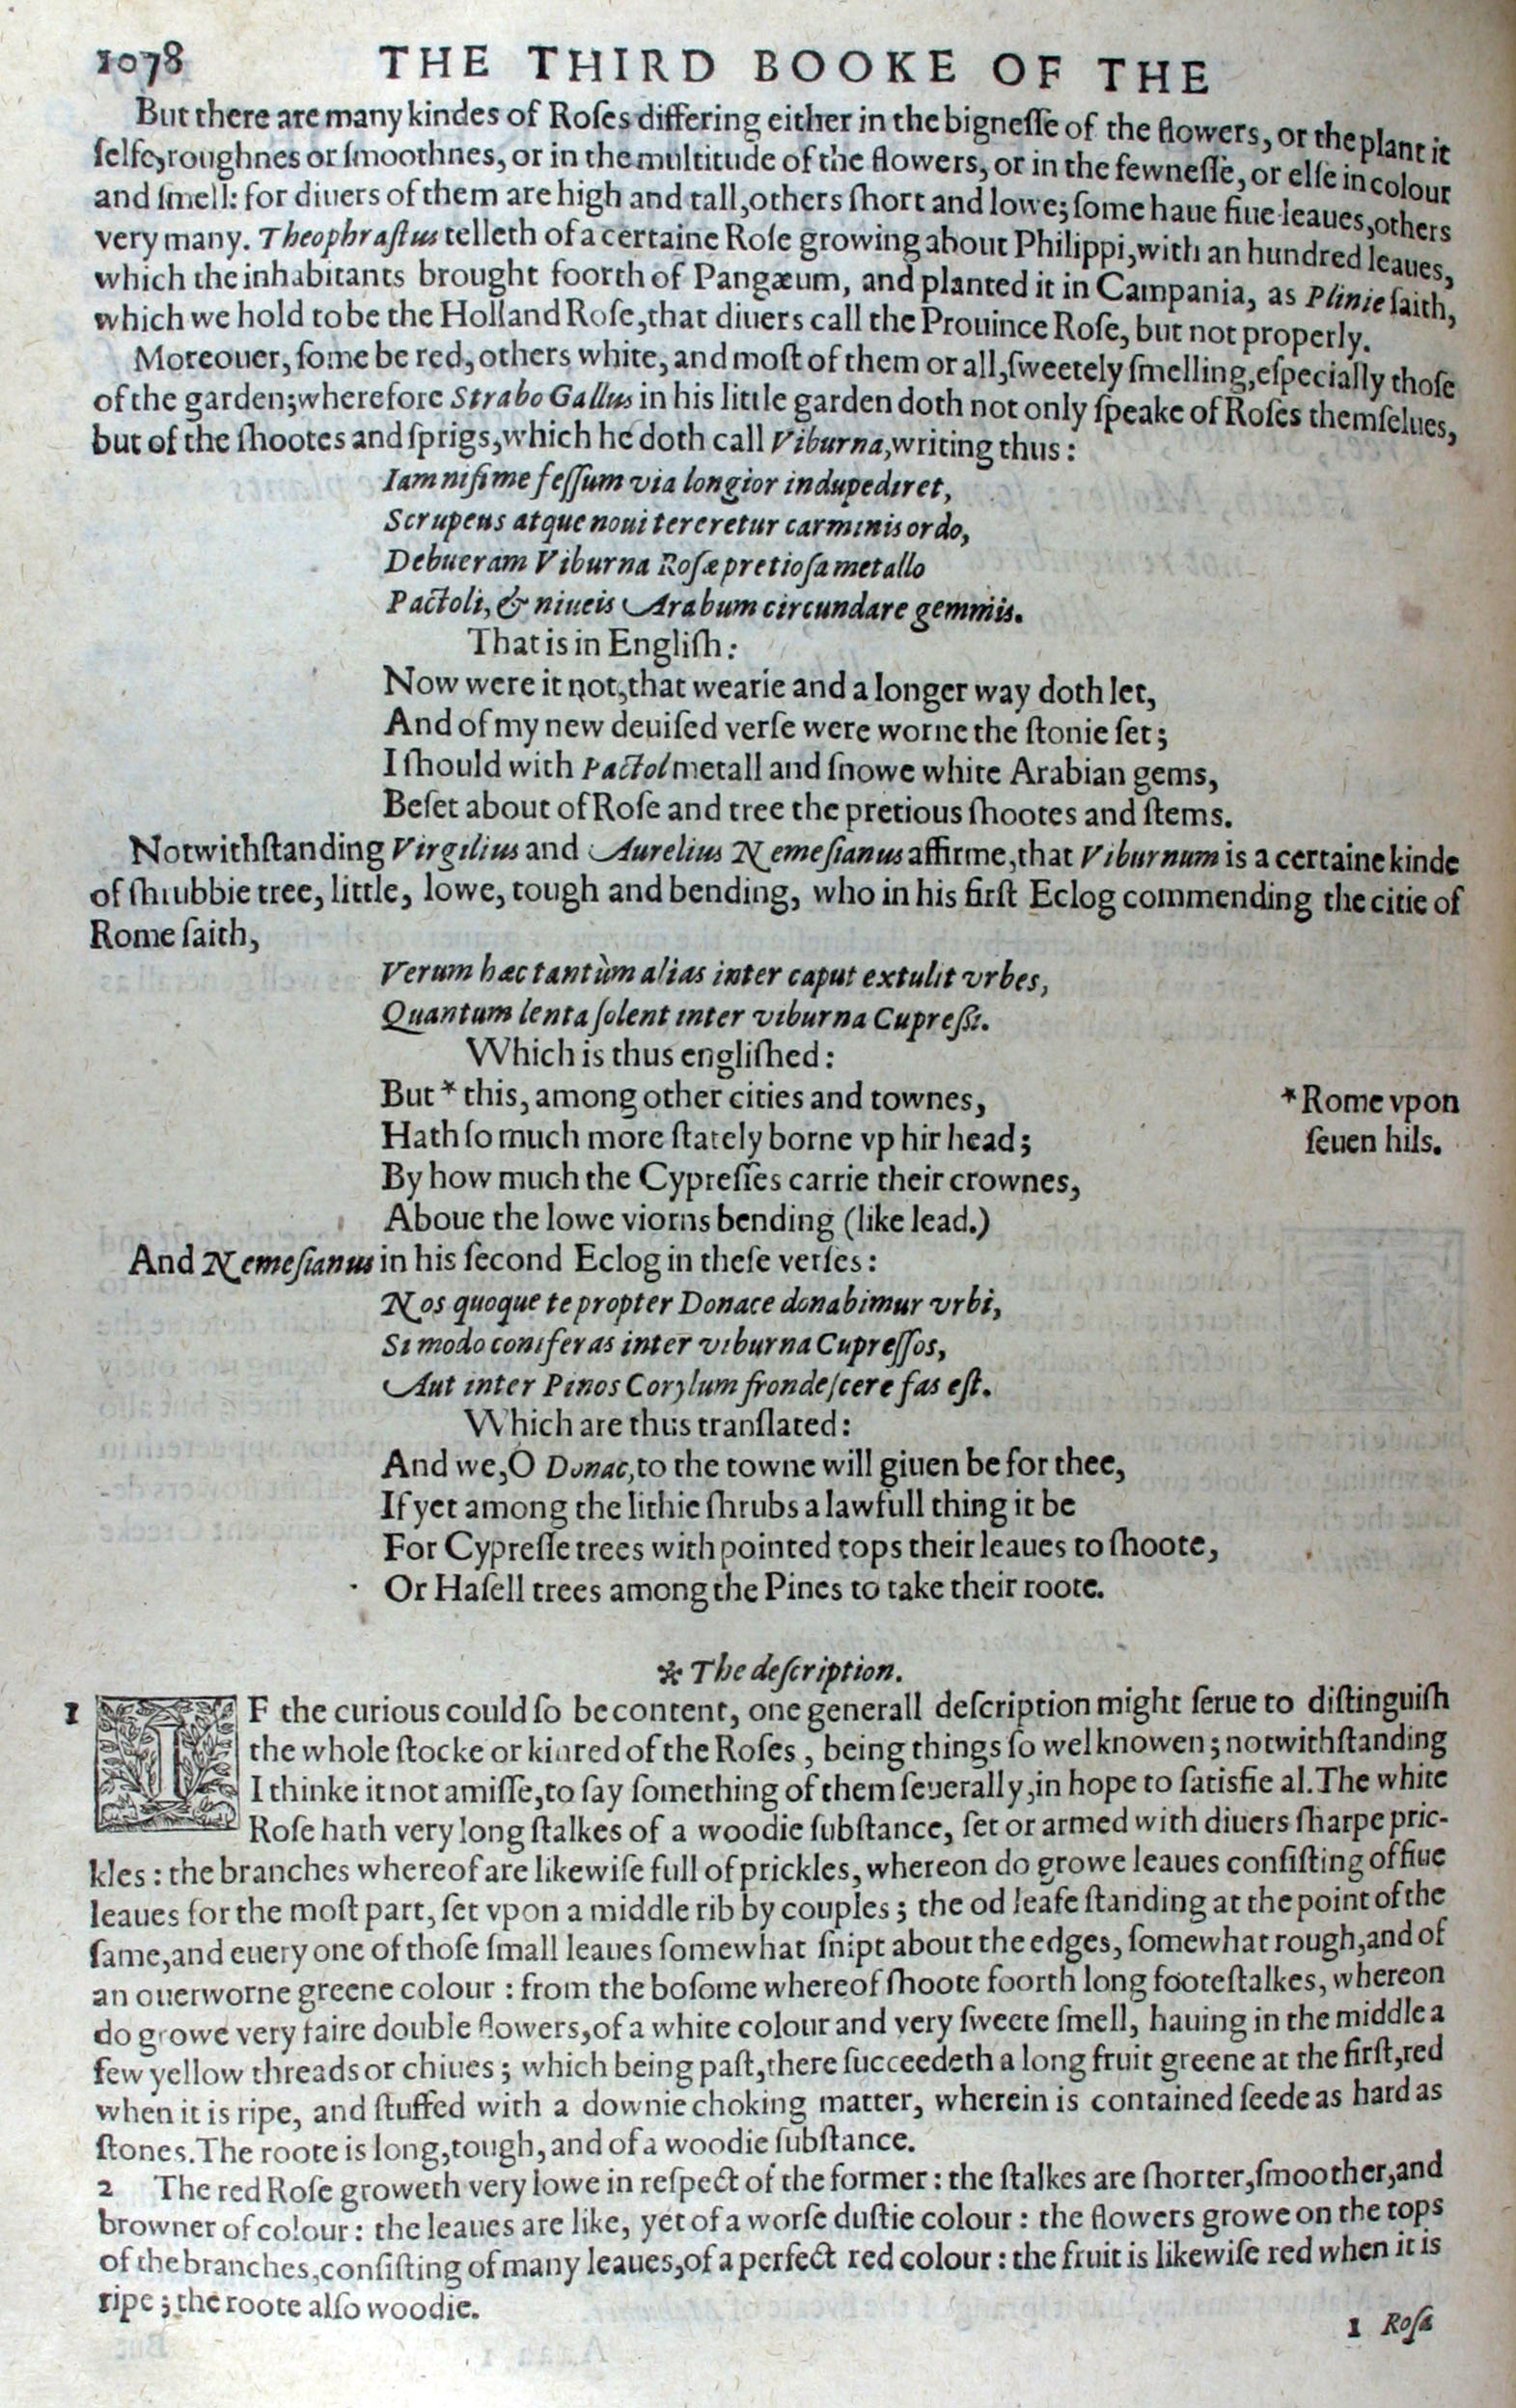 1078 THE THIRD BOOKE OF THE
But there are many kindes of Roſes differing either in the bigneſſe of the flowers, or the plant it
ſelfe, roughnes or ſmoothnes, or in the multitude of the flowers, or in the fewneſſe, or elſe in colour
and ſmell: for diuers of them are high and tall, others ſhort and lowe; ſome haue fiue leaues, others
very many. Theophraſtus telleth of a certaine Roſe growing about Philippi, with an hundred leaues,
which the inhabitants brought foorth of Pangæum, and planted it in Campania, as Plinie ſaith,
which we hold to be the Holland Roſe, that diuers call the Prouince Roſe, but not properly.
Moreouer, ſome be red, others white, and moſt of them or all, ſweetely ſmelling, eſpecially thoſe
of the garden; wherefore Strabo Gallus in his little garden doth not only ſpeake of Roſes themſelues,
but of the ſhootes and ſprigs, which he doth call Viburna, writing thus:
Iam niſi me feſſum via longior indupediret,
Scrupeus atque noui tereretur carminis ordo,
Debueram Viburna Roſæ pretioſa metallo
Pactoli, & niueis Arabum circundare gemmis.
That is in Engliſh:
Now were it not, that wearie and a longer way doth let,
And of my new deuiſed verſe were worne the ſtonie ſet;
I ſhould with Pactol metall and ſnowe white Arabian gems,
Beſet about of Roſe and tree the pretious ſhootes and ſtems.
Notwithſtanding Virgilius and Aurelius Nemeſianus affirme, that Viburnum is a certaine kinde
of ſhrubbie tree, little, lowe, tough and bending, who in his firſt Eclog commending the citie of
Rome ſaith,
Verum hæc tantùm alias inter caput extulit vrbes,
Quantum lenta ſolent inter viburna Cupreſſi.
Which is thus engliſhed:
But * this, among other cities and townes,
* Rome vpon
Hath ſo much more ſtately borne vp hir head;
ſeuen hils.
By how much the Cypreſſes carrie their crownes,
Aboue the lowe viorns bending (like lead.)
And Nemeſianus in his ſecond Eclog in theſe verſes:
Nos quoque te propter Donace donabimur vrbi,
Si modo coniferas inter viburna Cupreſſos,
Aut inter Pinos Corylum frondeſcere fas eſt.
Which are thus tranſlated:
And we, O Donac, to the towne will giuen be for thee,
If yet among the lithie ſhrubs a lawfull thing it be
For Cypreſſe trees with pointed tops their leaues to ſhoote,
Or Haſell trees among the Pines to take their roote.
✻ The deſcription.
1 IF the curious could ſo be content, one generall deſcription might ſerue to diſtinguiſh
the whole ſtocke or kinred of the Roſes, being things ſo wel knowen; notwithſtanding
I thinke it not amiſſe, to ſay ſomething of them ſeuerally, in hope to ſatisfie al. The white
Roſe hath very long ſtalkes of a woodie ſubſtance, ſet or armed with diuers ſharpe pric-
kles: the branches whereof are likewiſe full of prickles, whereon do growe leaues conſiſting of fiue
leaues for the moſt part, ſet vpon a middle rib by couples; the od leafe ſtanding at the point of the
ſame, and euery one of thoſe ſmall leaues ſomewhat ſnipt about the edges, ſomewhat rough, and of
an ouerworne greene colour: from the boſome whereof ſhoote foorth long footeſtalkes, whereon
do growe very faire double flowers, of a white colour and very ſweete ſmell, hauing in the middle a
few yellow threads or chiues; which being paſt, there ſucceedeth a long fruit greene at the firſt, red
when it is ripe, and ſtuffed with a downie choking matter, wherein is contained ſeede as hard as
ſtones. The roote is long, tough, and of a woodie ſubſtance.
2 The red Roſe groweth very lowe in reſpect of the former: the ſtalkes are ſhorter, ſmoother, and
browner of colour: the leaues are like, yet of a worſe duſtie colour: the flowers growe on the tops
of the branches, conſiſting of many leaues, of a perfect red colour: the fruit is likewiſe red when it is
ripe; the roote alſo woodie.
1 Roſa